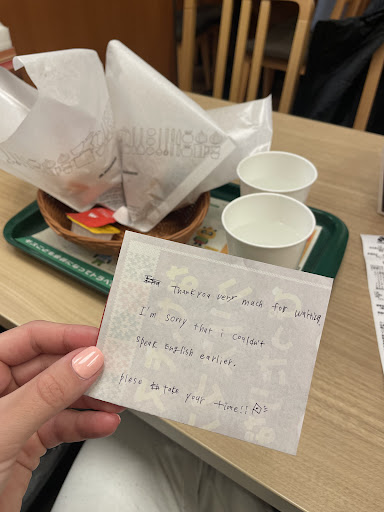 Thank you very much for waiting
I'm sorry that i couldn't
speak English earlier.
plese take your time!!